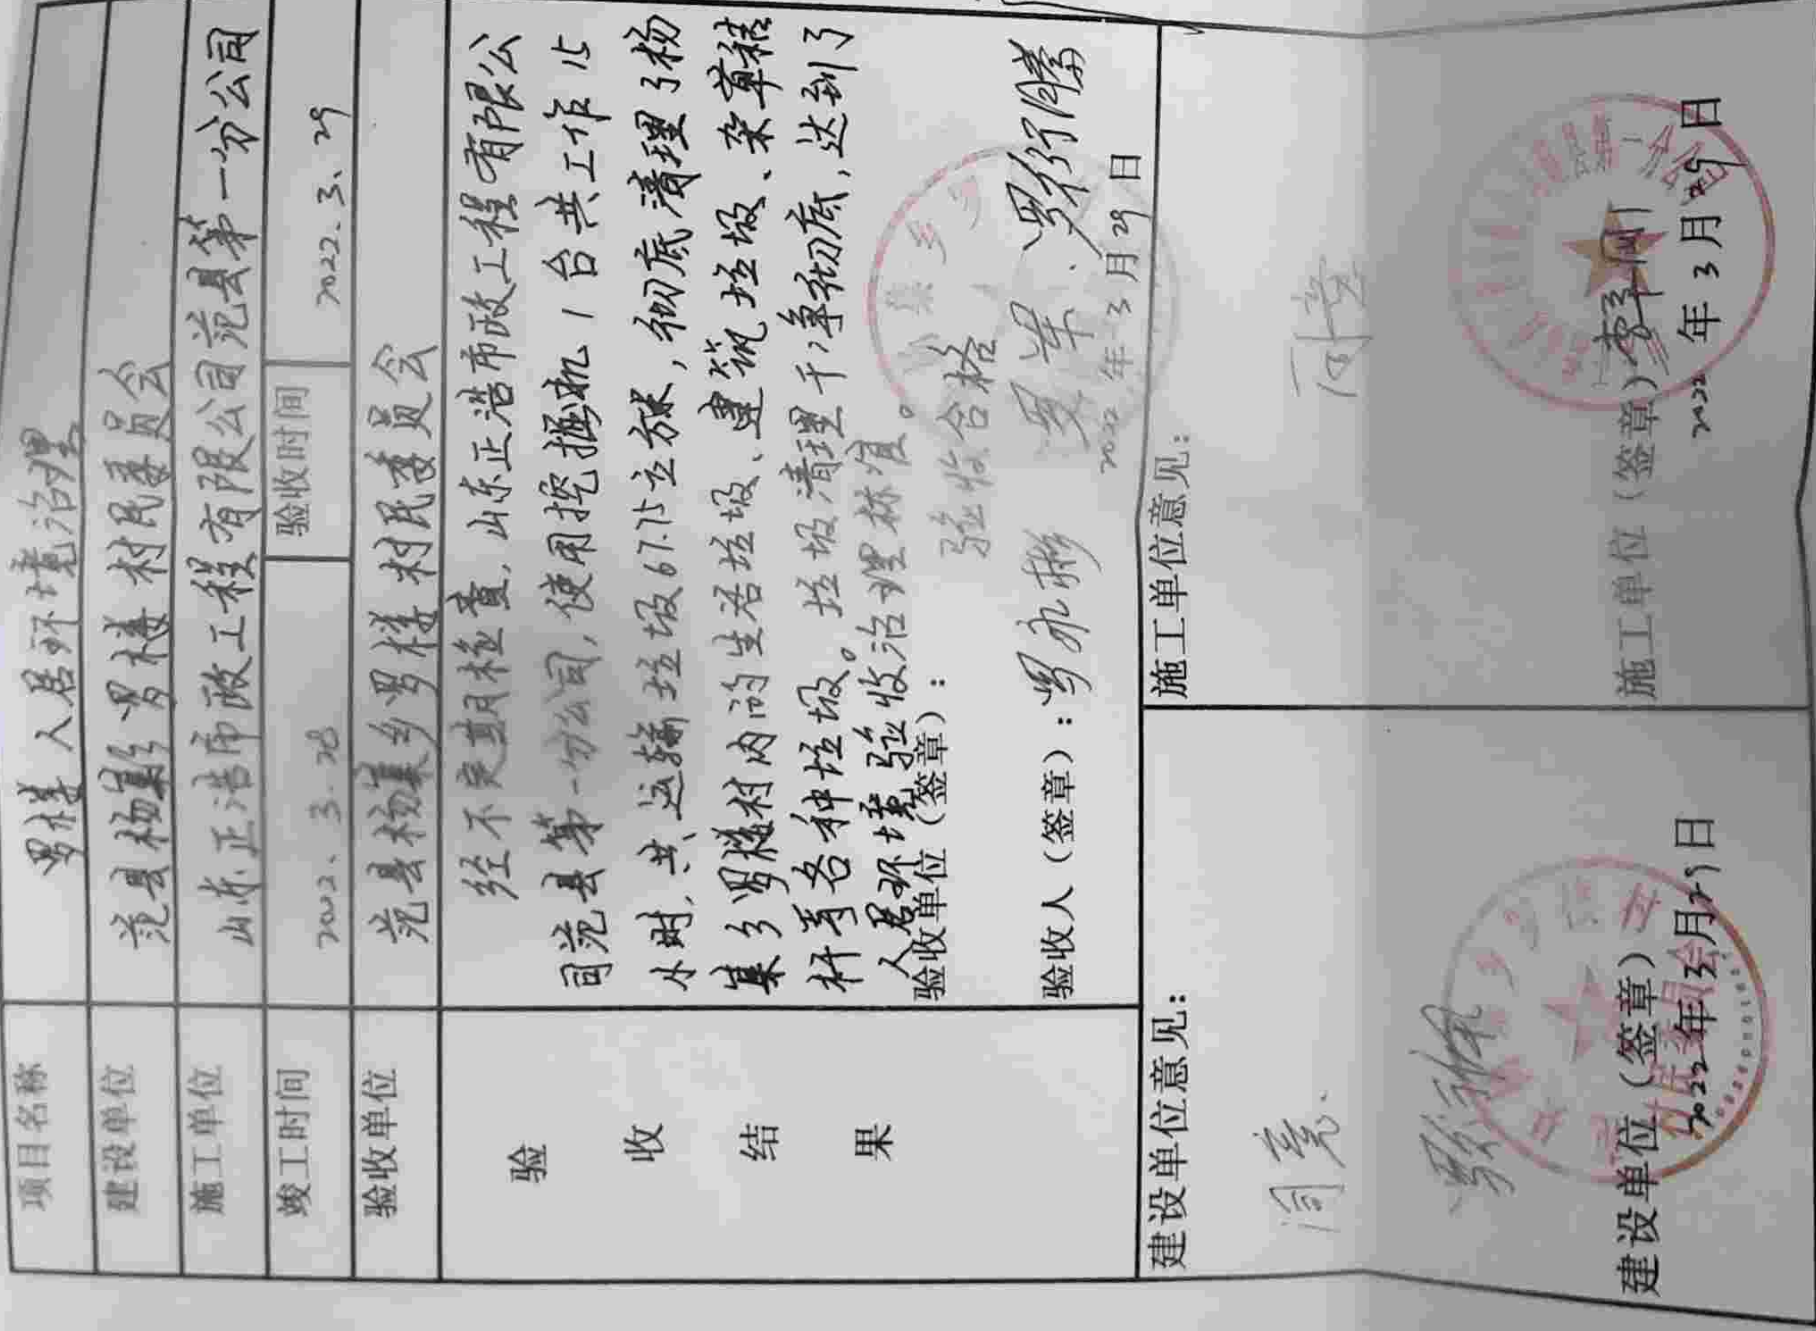 项目名称 罗楼人居环境治理
建设单位 范县杨集乡罗楼村民委员会
施工单位 山东正浩市政工程有限公司范县第一分公司
竣工时间 2022.3.28 验收时间 2022.3.29
验收单位 范县杨集乡罗楼村民委员会
验收结果
经不定期检查,山东正浩市政工程有限公
司范县第一分公司,使用挖掘机1台共工作15
小时,共运输垃圾67.75立方米,彻底清理了杨
集乡罗楼村内的生活垃圾、建筑垃圾、杂草秸
秆等各种垃圾。垃圾清理干净彻底,达到了
人居环境验收治理标准。
验收单位(签章):
验收合格
验收人(签章):罗永彬 罗 罗衍腾
2022年3月29日
建设单位意见:
同意.
建设单位(签章)
2022年3月29日
施工单位意见:
同意
施工单位(签章)
2022年3月29日